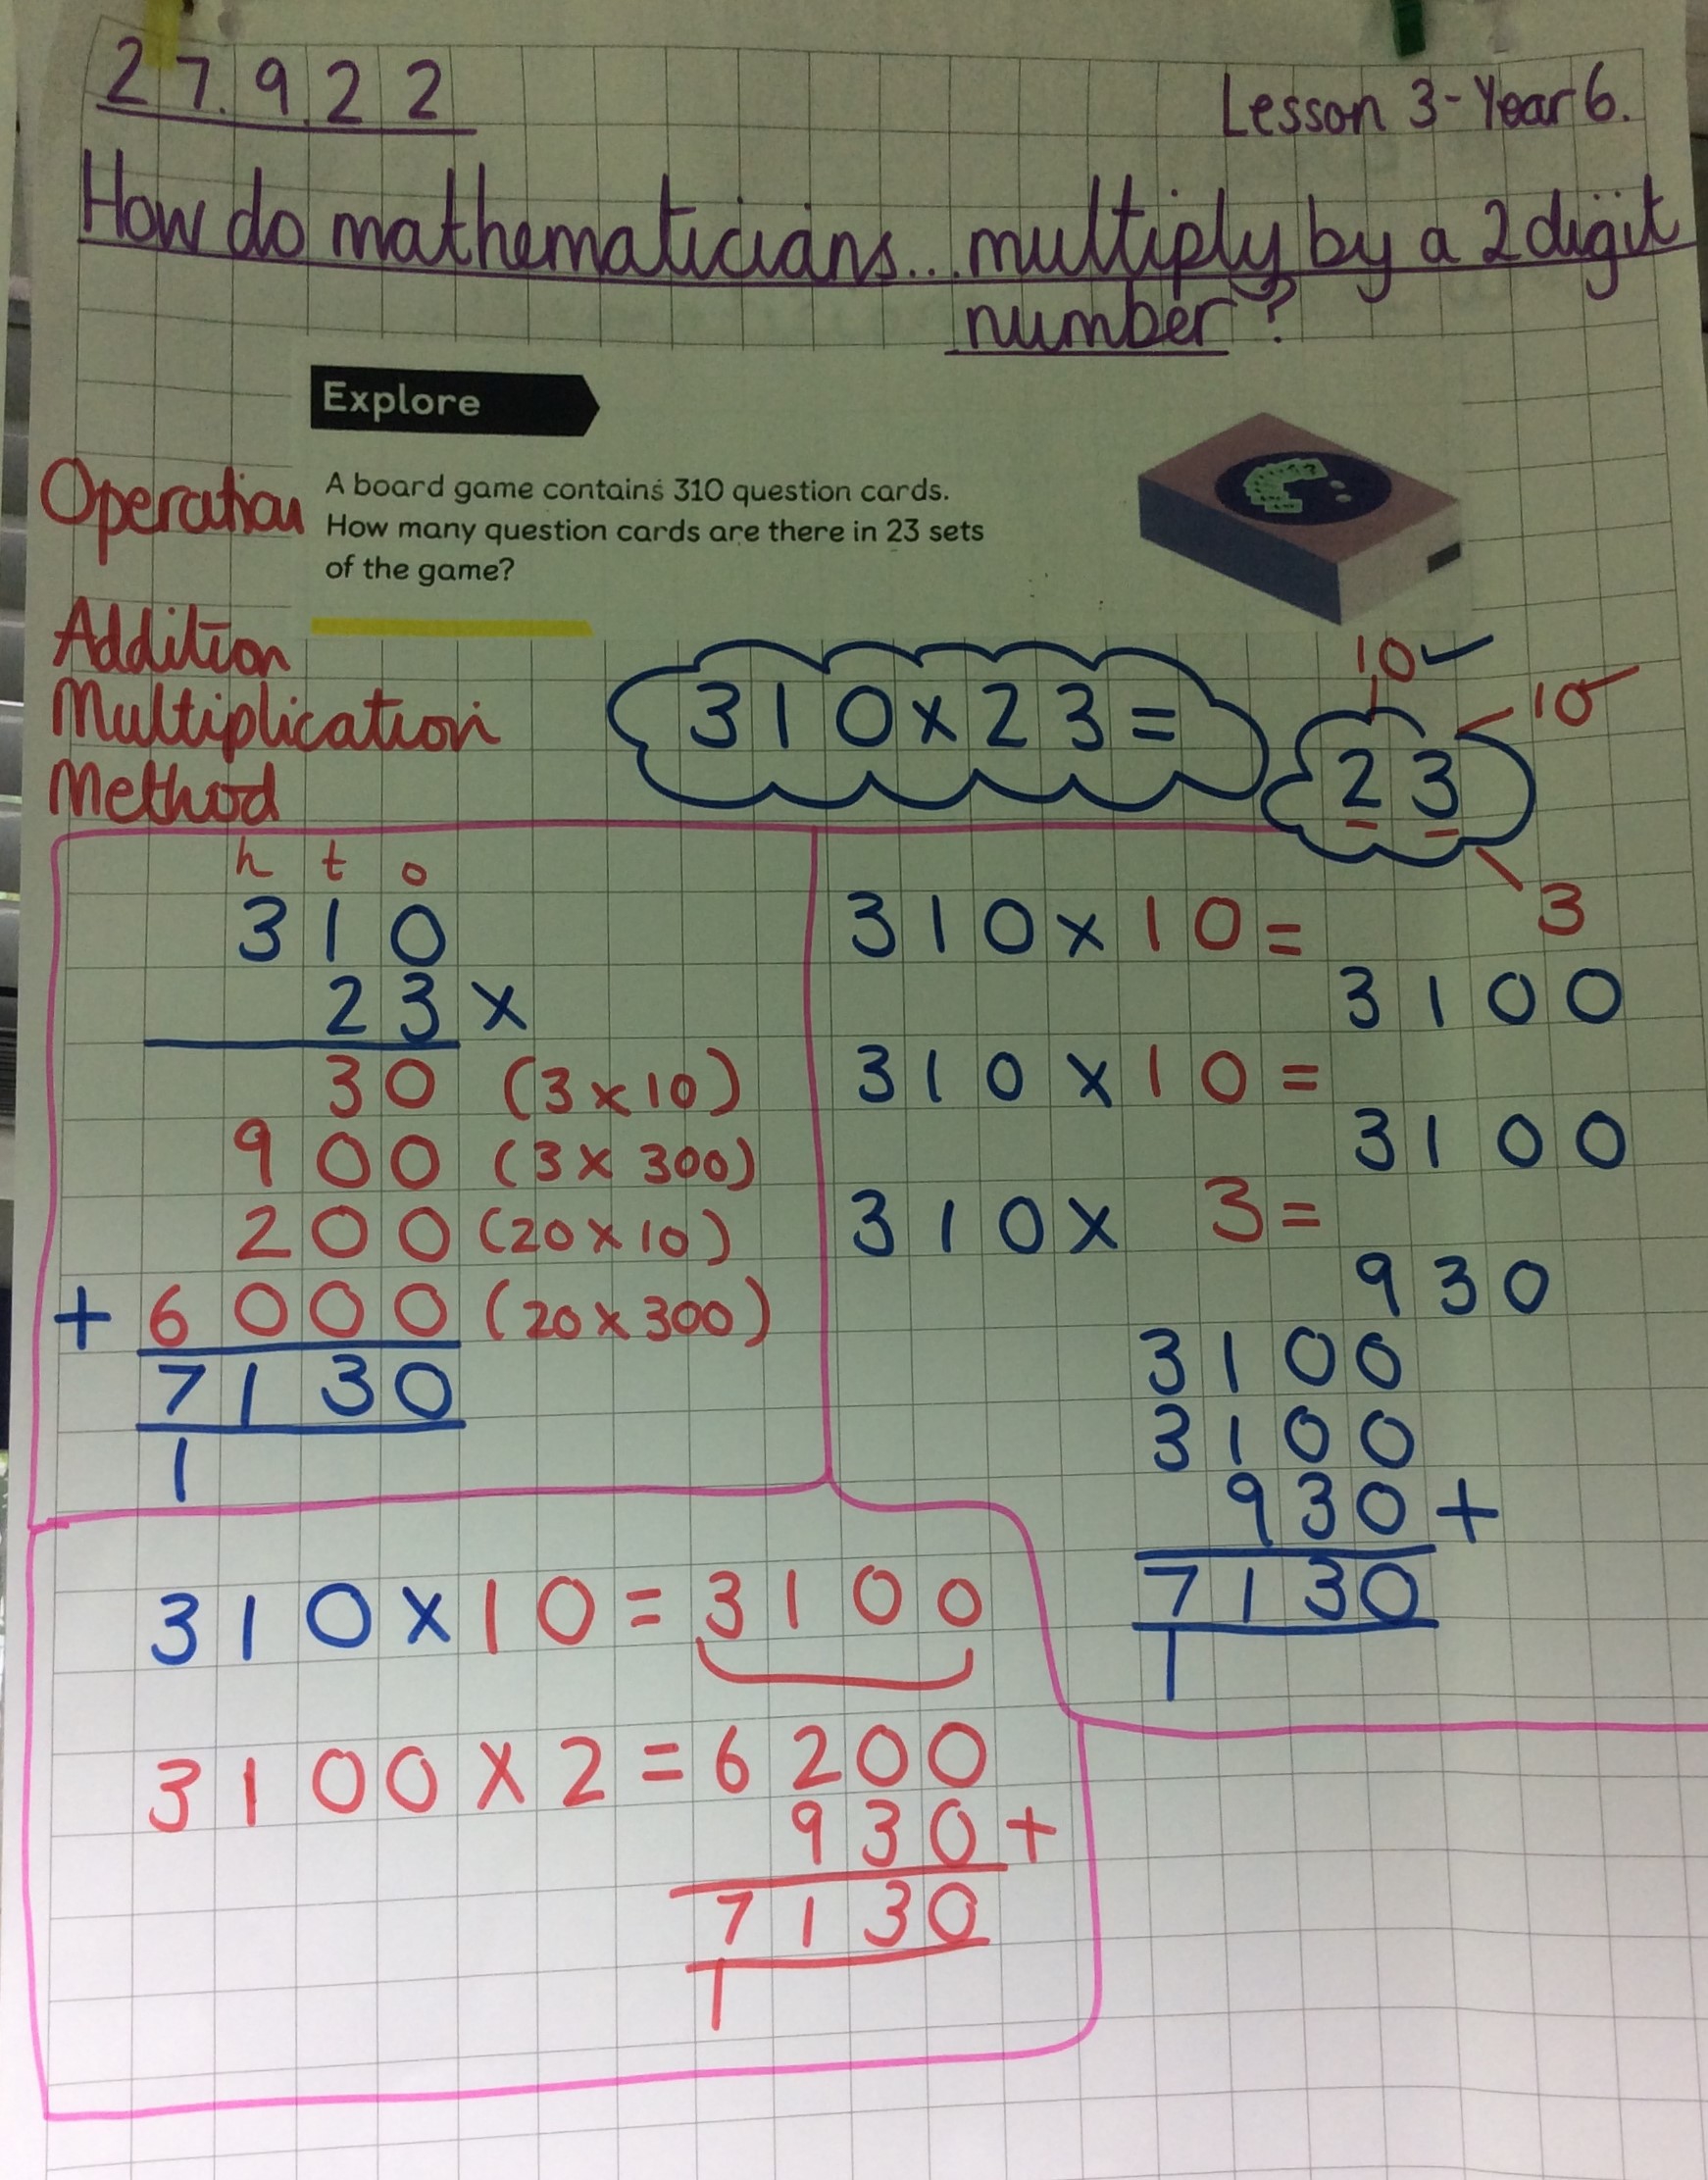 27.9.22
Lesson 3 - Year 6.
How do mathematicians... multiply by a 2 digit
number?
Explore
Operation
A board game contains 310 question cards.
How many question cards are there in 23 sets
of the game?
Addition
Multiplication
Method
310 x 23 =
10 ✓
10 ✓
23
3
h t o
310
23 x
30 (3 x 10)
900 (3 x 300)
200 (20 x 10)
+ 6000 (20 x 300)
7130
1
310 x 10 =
3100
310 x 10 =
3100
310 x 3 =
930
3100
3100
930 +
7130
1
310 x 10 = 3100
3100 x 2 = 6200
930 +
7130
1